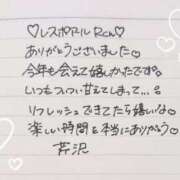 ♡レスポワール Rさん♡
ありがとうございました♡
今年も会えて嬉しかったです。
いつもつい甘えてしまって…
リフレッシュできてたら嬉しいな
楽しい時間を本当にありがとう◇
芹沢